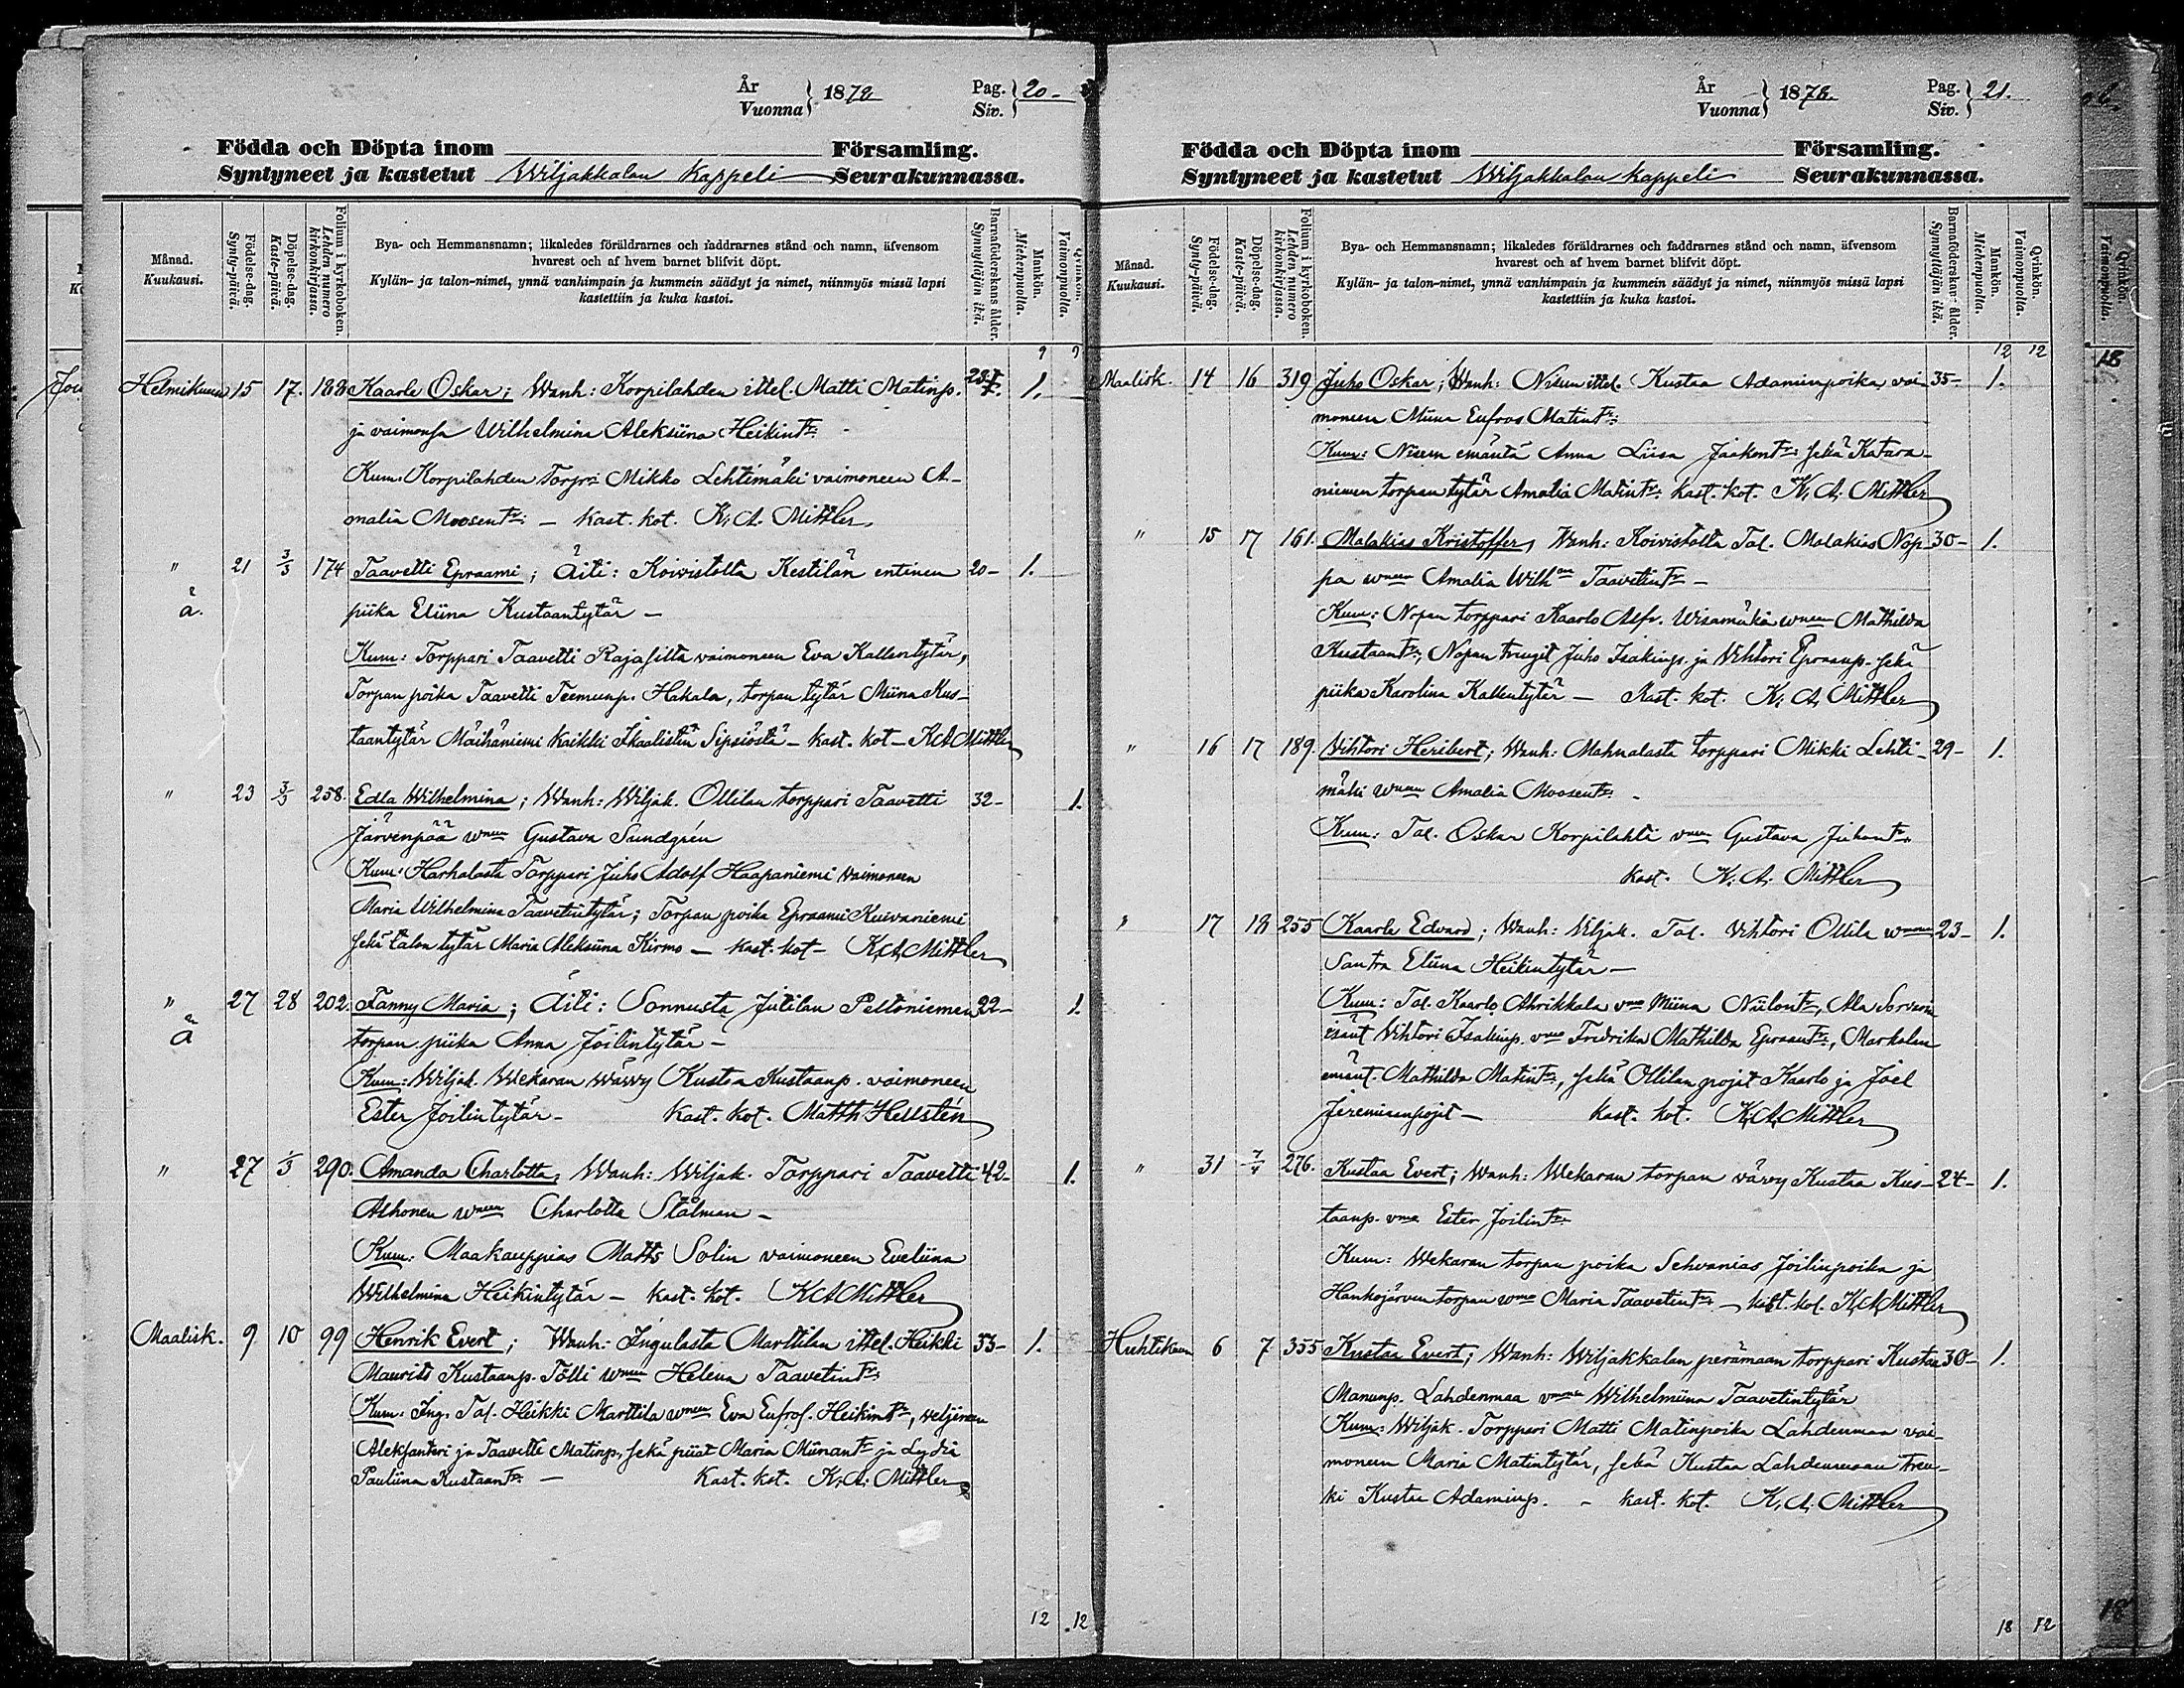 År
Vuonna } 1878
Pag.
Siv. } 20-
Födda och Döpta inom Församling.
Syntyneet ja kastetut Wiljakkalan Kappeli Seurakunnassa.
Månad.
Kuukausi.
Födelse-dag.
Synty-päivä.
Döpelse-dag.
Kaste-päivä.
Folium i kyrkoboken.
Lehden numero
kirkonkirjassa.
Bya- och Hemmansnamn; likaledes föräldrarnes och faddrarnes stånd och namn, äfvensom
hvarest och af hvem barnet blifvit döpt.
Kylän- ja talon-nimet, ynnä vanhimpain ja kummein säädyt ja nimet, niinmyös missä lapsi
kastettiin ja kuka kastoi.
Barnaföderskans ålder.
Synnyttäjän ikä.
Mankön.
Miehenpuolta.
Qvinkön.
Vaimonpuolta.
9 9
Helmikuun 15 17. 188 Kaarle Oskar; Wanh: Korpilahden ittel. Matti Matinp. 1.
ja vaimonsa Wilhelmina Aleksiina Heikintr:
Kum: Korpilahden Torpri Mikko Lehtimäki vaimoneen A-
malia Moosentr: – Kast. kot. K. A. Mittler
" 21 3/3 174 Taavetti Epraami; Äiti: Koivistolta Kestilän entinen 20- 1.
ä. piika Eliina Kustaantytär –
Kum: Torppari Taavetti Rajasilta vaimoneen Eva Kallentytär,
Torpan poika Taavetti Teemunp. Hakala, torpan tytär Miina Kus-
taantytär Mäihäniemi kaikki Ikaalistin Sipsiöstä – kast. kot – K A Mittler
" 23 3/3 258. Edla Wilhelmina; Wanh: Wiljak. Ollilan torppari Taavetti 32- 1.
Järvenpää wneen Gustava Sundgrén
Kum: Harhalasta Torppari Juho Adolf Haapaniemi vaimoneen
Maria Wilhelmina Taavetintytär; Torpan poika Epraami Kuivaniemi
sekä talon tytär Maria Aleksiina Kirmo – kast. kot – K. A. Mittler
" 27 28 202. Fanny Maria; Äiti: Sonnusta Jutilan Peltoniemen 22- 1.
Ä torpan piika Anna Joilintytär –
Kum: Wiljak. Wekaran wävvy Kustaa Kustaanp. vaimoneen
Ester Joilintytär – Kast. kot. Matth Hellstén
" 27 1/3 290. Amanda Charlotta; Wanh: Wiljak. Torppari Taavetti 42- 1.
Alhonen wneen Charlotta Stålman –
Kum: Maakauppias Matts Solin vaimoneen Eveliina
Wilhelmina Heikintytär – kast. kot. K A Mittler
Maalisk. 9 10 99 Henrik Evert; Wanh: Ingulasta Marttilan ittel. Heikki 33- 1.
Maurits Kustaanp. Tölli wneen Helena Taavetintr:
Kum: Ing. Tal. Heikki Marttila wneen Eva Eufros. Heikintr, veljineen
Aleksanteri ja Taavetti Matinp, sekä piiat Maria Miinantr ja Lydia
Pauliina Kustaantr: – Kast. kot. K. A. Mittler
12 12
År
Vuonna } 1878.
Pag.
Siv. } 21.
Födda och Döpta inom Församling.
Syntyneet ja kastetut Wiljakkalan Kappeli Seurakunnassa.
Månad.
Kuukausi.
Födelse-dag.
Synty-päivä.
Döpelse-dag.
Kaste-päivä.
Folium i kyrkoboken.
Lehden numero
kirkonkirjassa.
Bya- och Hemmansnamn; likaledes föräldrarnes och faddrarnes stånd och namn, äfvensom
hvarest och af hvem barnet blifvit döpt.
Kylän- ja talon-nimet, ynnä vanhimpain ja kummein säädyt ja nimet, niinmyös missä lapsi
kastettiin ja kuka kastoi.
Barnaföderskans ålder.
Synnyttäjän ikä.
Mankön.
Miehenpuolta.
Qvinkön.
Vaimonpuolta.
12 12
Maalisk. 14 16 319 Juho Oskar; Wanh: Nisun ittel. Kustaa Adaminpoika vai- 35- 1.
moneen Miina Eufros Matintr:
Kum: Nisun emäntä Anna Liisa Jaakontr: sekä Katara-
niemen torpan tytär Amalia Matintr: kast. kot. K. A. Mittler
" 15 17 161. Malakias Kristoffer, Wanh: Koivistolta Tal. Malakias Nop- 30- 1.
pa wneen Amalia Wilhna Taavetintr –
Kum: Nopan torppari Kaarlo Alfr. Wisamäki wneen Mathilda
Kustaantr:, Nopan trengit Juho Isakinp. ja Vihtori Epraanp. sekä
piika Karolina Kallentytär – Kast. kot. K. A. Mittler
" 16 17 189. Vihtori Heribert; Wanh: Mahnalasta torppari Mikki Lehti- 29- 1.
mäki wneen Amalia Moosentr: –
Kum: Tal. Oskar Korpilahti vneen Gustava Juhontr.
kast. K. A. Mittler
" 17 18 255 Kaarle Edvard; Wanh: Viljak. Tal. Vihtori Ollila wneen 23- 1.
Santra Eliina Heikintytär –
Kum: Tal. Kaarlo Ahrikkala vne Miina Niilontr, Ala Sorvarin
isänt Vihtori Isakinp. vne Fredrika Mathilda Epraantr:, Markalan
emänt. Mathilda Matintr:, sekä Ollilan pojat Kaarlo ja Joel
Jeremiaanpojat – kast. kot. K. A. Mittler
" 31 7/4 276. Kustaa Evert; Wanh: Wekaran torpan vävvy Kustaa Kus- 24- 1.
taanp. vne Ester Joilintr.
Kum: Wekaran torpan poika Sehvanias Joilinpoika ja
Hankojärven torpan wne Maria Taavetintr: – kast. kot. K. A. Mittler
Huhtikuun 6 7 355 Kustaa Evert; Wanh: Wiljakkalan perämaan torppari Kustaa 30- 1.
Manunp. Lahdenmaa vneen Wilhelmiina Taavetintytär
Kum: Wiljak. Torppari Matti Matinpoika Lahdenmaa vai-
moneen Maria Matintytär, sekä Kustaa Lahdenmaan tren-
ki Kustaa Adaminp. – kast. kot. K. A. Mittler
18 12